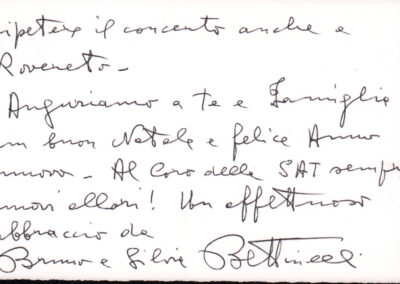 ripetere il concerto anche a
Rovereto –
Auguriamo a te e Famiglia
un buon Natale e felice Anno
nuovo – Al Coro della SAT sempre
nuovi allori! Un affettuoso
abbraccio da
Bruno e Silvia Bettinelli